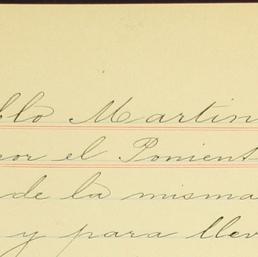 blo Martin
por el Ponient
de la misma
y para llev